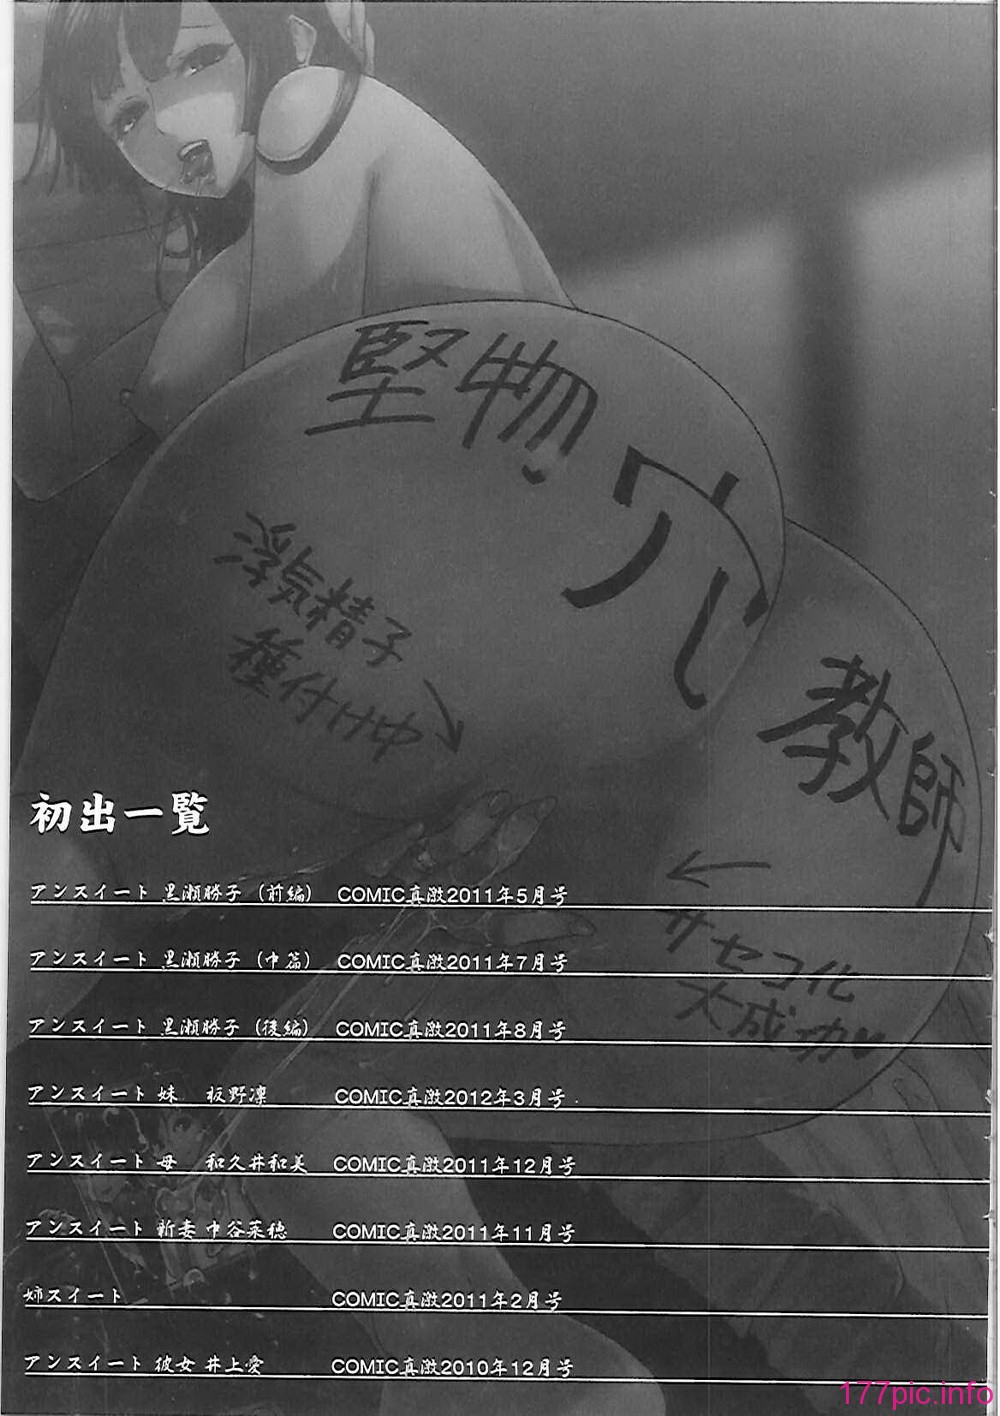 堅物
穴
教師
浮気精子
種付け中
サセコ化
大成功♥
初出一覧
アンスイート 黒瀬勝子（前編） COMIC真激2011年5月号
アンスイート 黒瀬勝子（中篇） COMIC真激2011年7月号
アンスイート 黒瀬勝子（後編） COMIC真激2011年8月号
アンスイート 妹 板野凛 COMIC真激2012年3月号
アンスイート 母 和久井和美 COMIC真激2011年12月号
アンスイート 新妻 中谷菜穂 COMIC真激2011年11月号
姉スイート COMIC真激2011年2月号
アンスイート 彼女 井上愛 COMIC真激2010年12月号
177pic.info